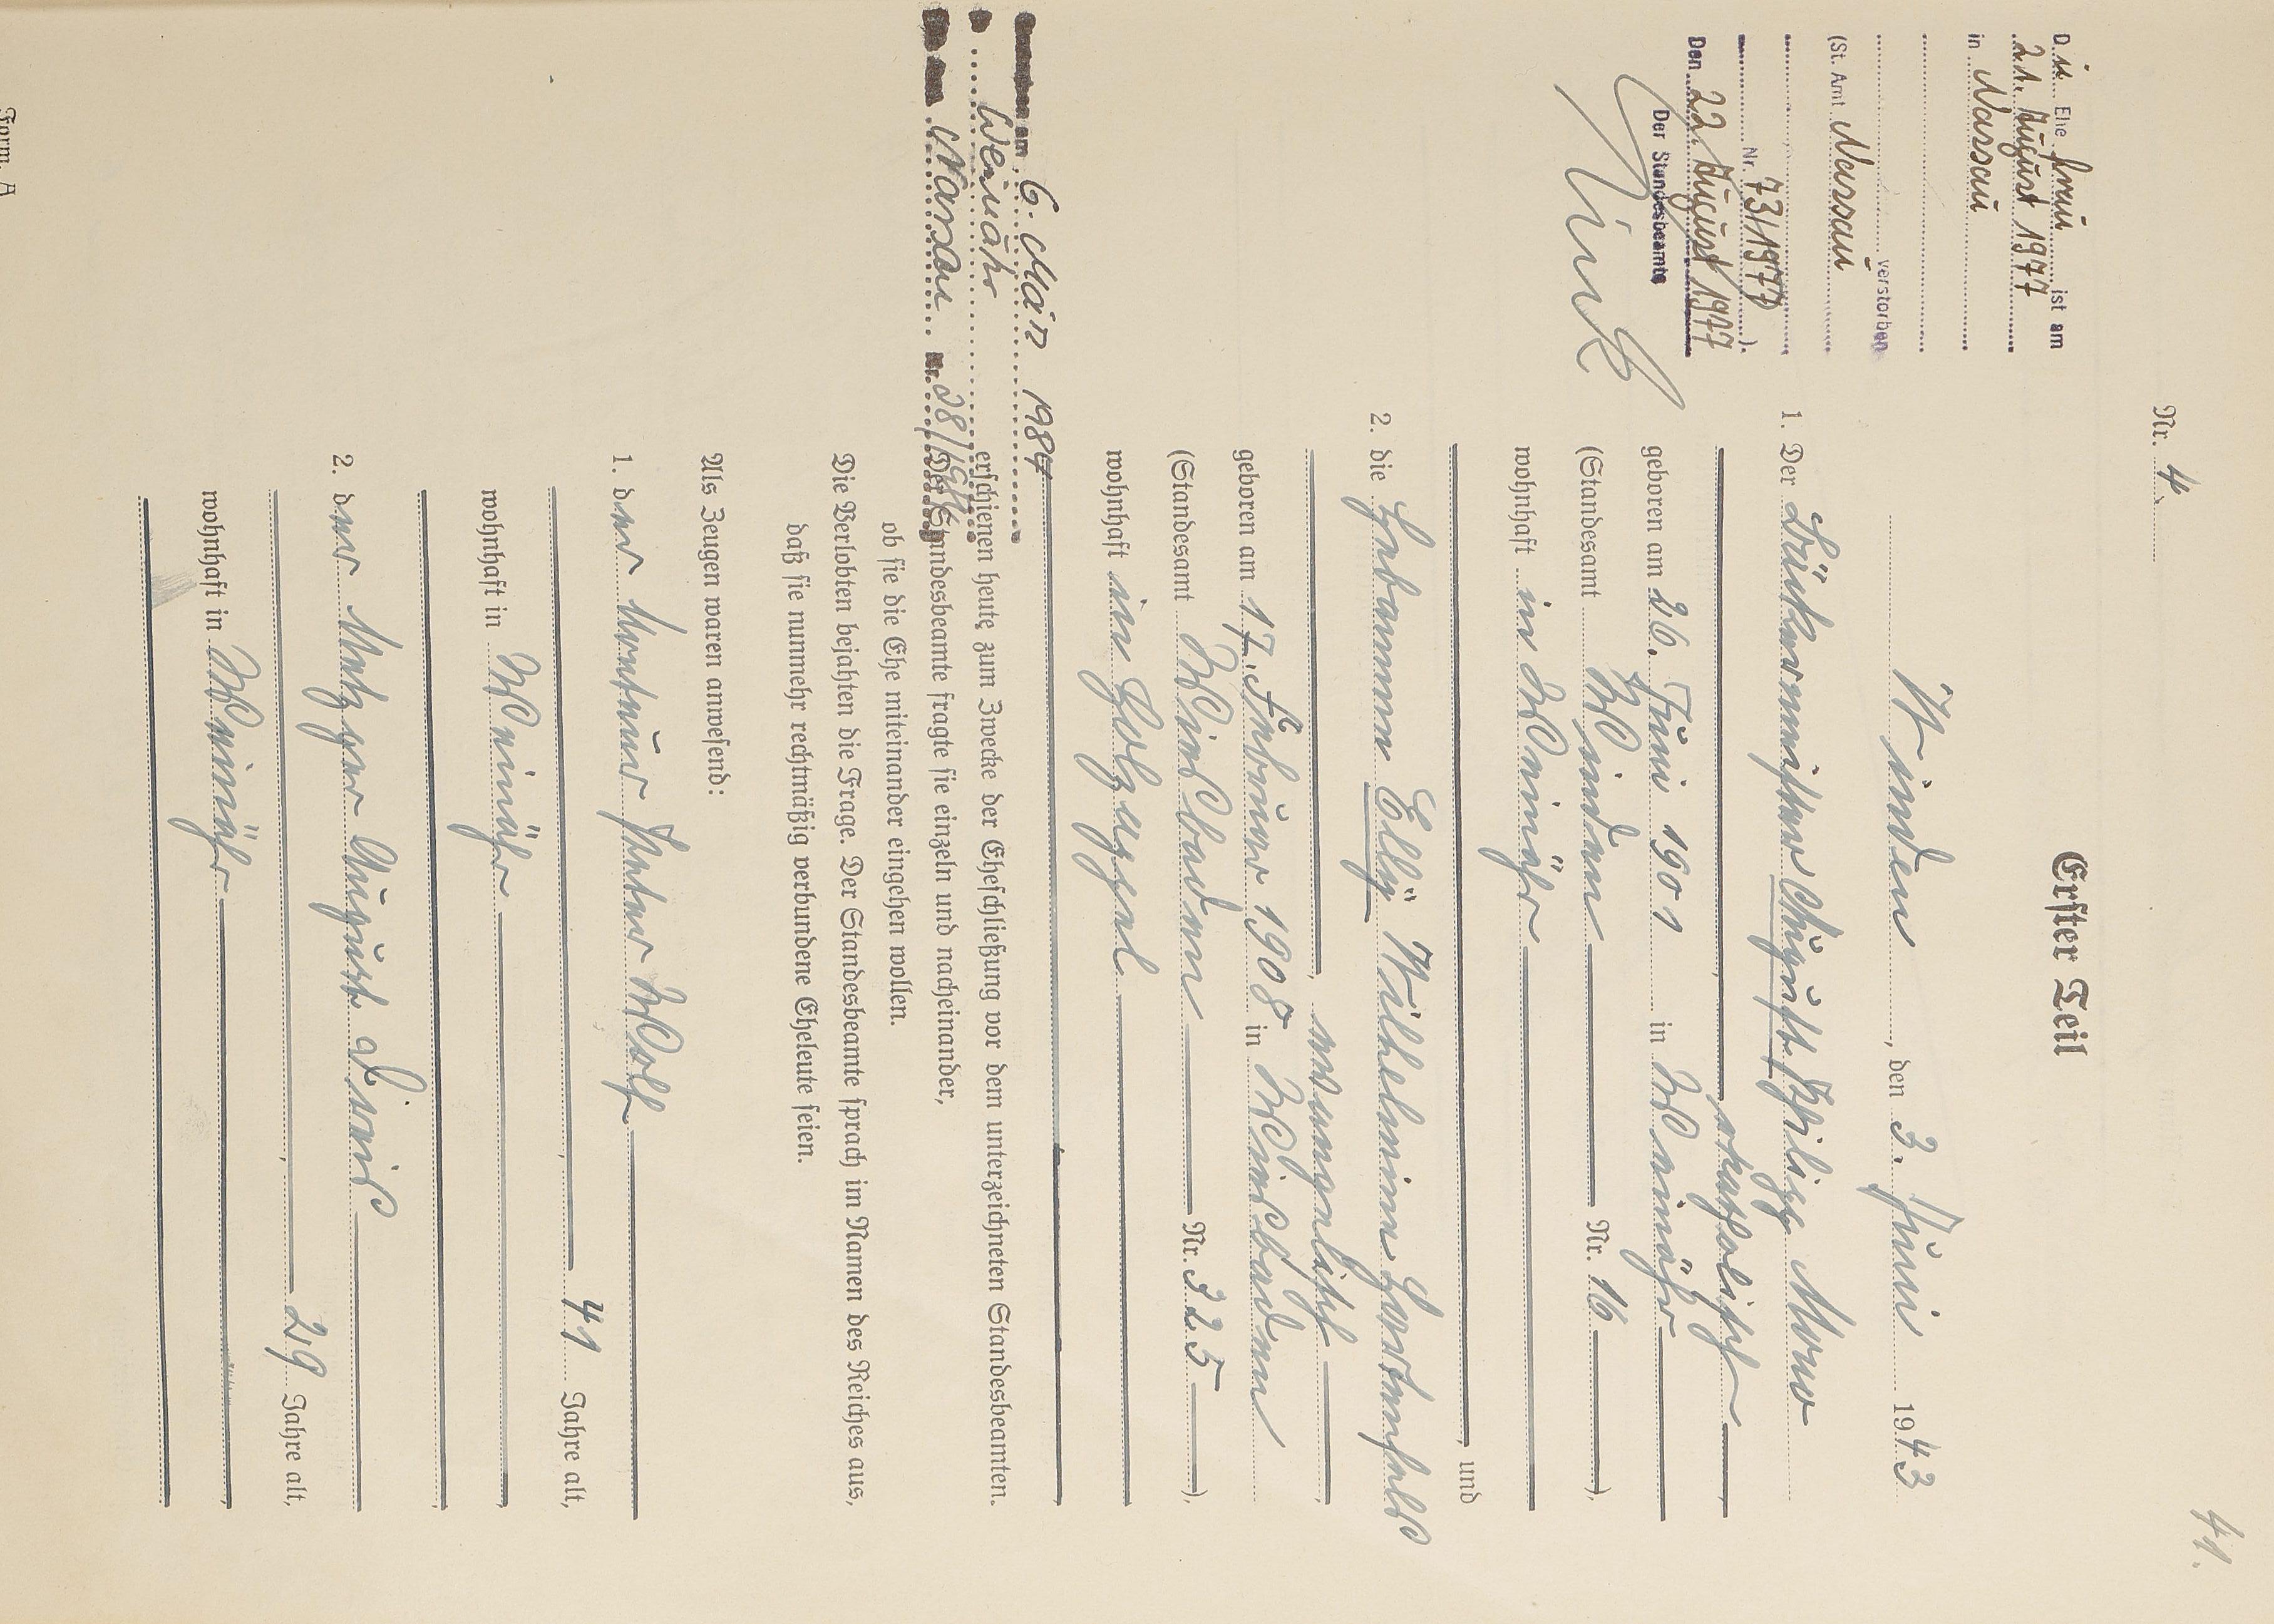 41.
Nr. 4
Erster Teil
Winden, den 3. Juni 1943
1. Der Bäckermeister August Philipp Maus
katholisch
geboren am 26. Juni 1901 in Weinähr
(Standesamt Winden Nr. 16),
wohnhaft in Weinähr
, und
2. die Hebamme Elly Wilhelmine
, evangelisch,
geboren am 17. Februar 1908 in Wiesbaden
(Standesamt Wiesbaden Nr. 325),
wohnhaft in Holzappel
erschienen heute zum Zwecke der Eheschließung vor dem unterzeichneten Standesbeamten.
Der Standesbeamte fragte sie einzeln und nacheinander,
ob sie die Ehe miteinander eingehen wollen.
Die Verlobten bejahten die Frage. Der Standesbeamte sprach im Namen des Reiches aus,
daß sie nunmehr rechtmäßig verbundene Eheleute seien.
Als Zeugen waren anwesend:
1. der Monteur Peter Wolf
41 Jahre alt,
wohnhaft in Weinähr
2. der Metzger August
29 Jahre alt,
wohnhaft in Weinähr
Die Ehefrau ist am
21. August 1977
in Nassau
verstorben
(St. Amt Nassau
Nr. 73/1977).
Den 22. August 1977
Der Standesbeamte
am 6. März 1984
Weinähr
Nassau Nr. 28/1984
Form. A